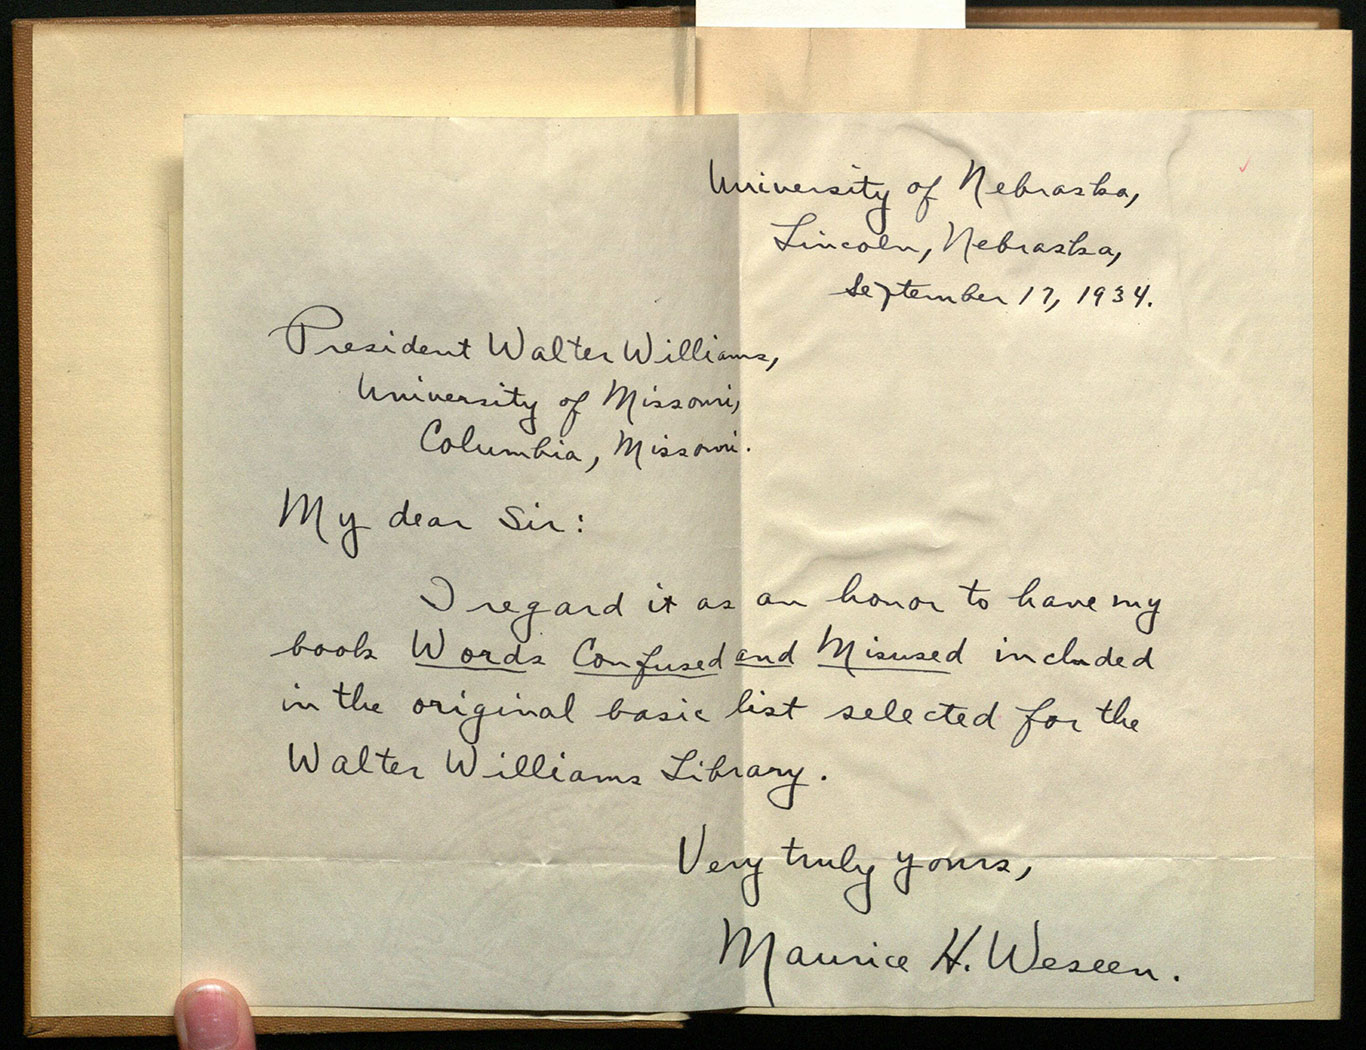 University of Nebraska,
Lincoln, Nebraska,
September 17, 1934.
President Walter Williams,
University of Missouri,
Columbia, Missouri.
My dear Sir:
I regard it as an honor to have my
book Words Confused and Misused included
in the original basic list selected for the
Walter Williams Library.
Very truly yours,
Maurice H. Weseen.